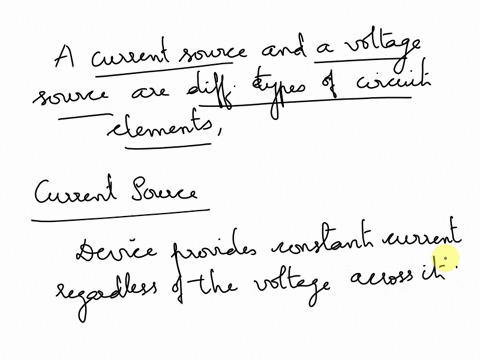 A current source and a voltage
source are diff. types of circuit
elements,
Current Source
Device provides constant current
regardless of the voltage across it.